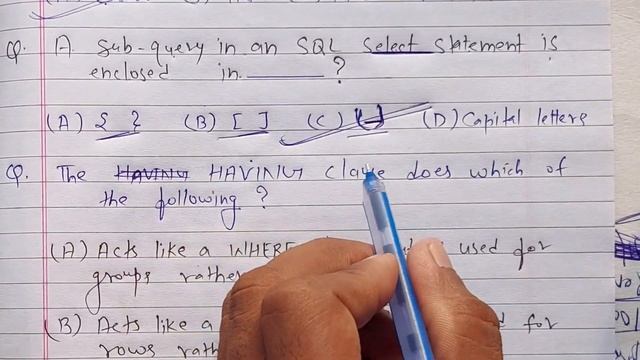 Q. A sub-query in an SQL Select statement is
enclosed in ______ ?
(A) { } (B) [ ] (C) ( ) (D) Capital letters
Q. The HAVING HAVING clause does which of
the following ?
(A) Acts like a WHERE used for
groups
(B) Acts like a for
rows